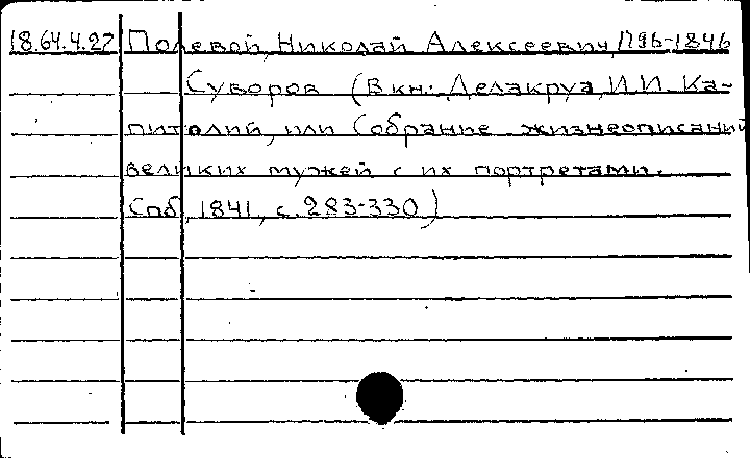 18.64.4.27 Полевой, Николай Алексеевич, 1796-1846
Суворов (В кн: Делакруа, И.И. Ка-
питолий, или Собрание жизнеописаний
великих мужей с их портретами.
Спб, 1841, с. 283-330)